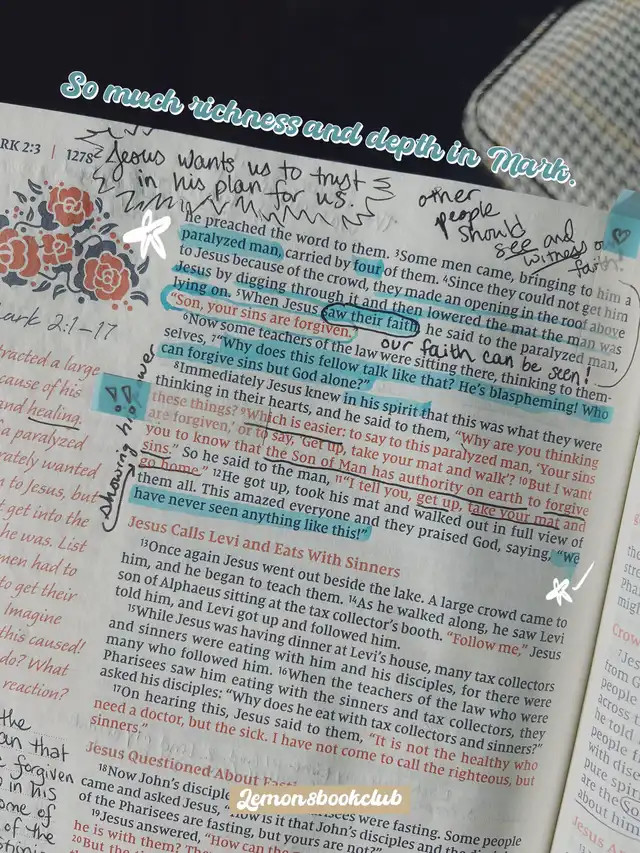 So much richness and depth in Mark.
RK 2:3 | 1278
Jesus wants us to trust
in his plan for us.
other
people
should
see and
witness our
faith.
he preached the word to them. 3Some men came, bringing to him a
paralyzed man, carried by four of them. 4Since they could not get him
to Jesus because of the crowd, they made an opening in the roof above
Jesus by digging through it and then lowered the mat the man was
lying on. 5When Jesus saw their faith, he said to the paralyzed man,
“Son, your sins are forgiven.”
our faith can be seen!
6Now some teachers of the law were sitting there, thinking to them-
selves, 7“Why does this fellow talk like that? He’s blaspheming! Who
can forgive sins but God alone?”
8Immediately Jesus knew in his spirit that this was what they were
thinking in their hearts, and he said to them, “Why are you thinking
these things? 9Which is easier: to say to this paralyzed man, ‘Your sins
are forgiven,’ or to say, ‘Get up, take your mat and walk’? 10But I want
you to know that the Son of Man has authority on earth to forgive
sins.” So he said to the man, 11“I tell you, get up, take your mat and
go home.” 12He got up, took his mat and walked out in full view of
them all. This amazed everyone and they praised God, saying, “We
have never seen anything like this!”
showing h
wer
!!
Jesus Calls Levi and Eats With Sinners
13Once again Jesus went out beside the lake. A large crowd came to
him, and he began to teach them. 14As he walked along, he saw Levi
son of Alphaeus sitting at the tax collector’s booth. “Follow me,” Jesus
told him, and Levi got up and followed him.
15While Jesus was having dinner at Levi’s house, many tax collectors
and sinners were eating with him and his disciples, for there were
many who followed him. 16When the teachers of the law who were
Pharisees saw him eating with the sinners and tax collectors, they
asked his disciples: “Why does he eat with tax collectors and sinners?”
17On hearing this, Jesus said to them, “It is not the healthy who
need a doctor, but the sick. I have not come to call the righteous, but
sinners.”
Jesus Questioned About Fasti
18Now John’s discipl isees were fasting. Some people
came and asked Jesus, “How is it that John’s disciples and the disci
of the Pharisees are fasting, but yours are not?”
19Jesus answered, “How can the
he is with them? The
20But the
Lemon8bookclub
ark 2:1–17
tracted a large
cause of his
and healing.
a paralyzed
rately wanted
n to Jesus, but
t get into the
he was. List
men had to
to get their
Imagine
this caused!
do? What
reaction?
the
an that
e forgiven
s in his
ome of
of the
g
the
stre
Pha
migh
Crow
7Jes
from G
the peo
across
he told
people
with dise
pure spirit
are the Son
about him.
Jesus A